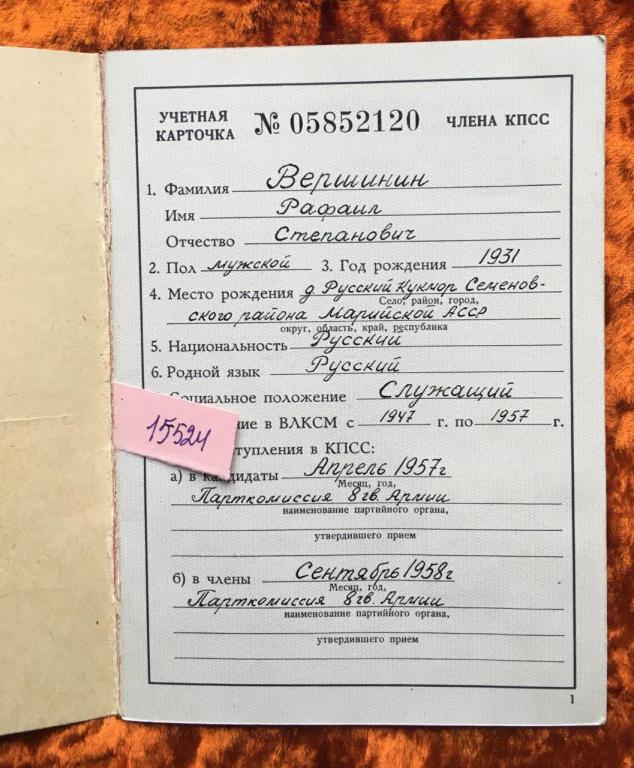 УЧЕТНАЯ КАРТОЧКА № 05852120 ЧЛЕНА КПСС
1. Фамилия Вершинин
Имя Рафаил
Отчество Степанович
2. Пол мужской 3. Год рождения 1931
4. Место рождения д Русский Кукмор Семенов-
Село, район, город,
ского района Марийской АССР
округ, область, край, республика
5. Национальность Русский
6. Родной язык Русский
оциальное положение Служащий
ние в ВЛКСМ с 1947 г. по 1957 г.
15524
тупления в КПСС:
а) в кандидаты Апрель 1957г
Месяц, год,
Парткомиссия 8гв. Армии
наименование партийного органа,
утвердившего прием
б) в члены Сентябрь 1958г
Месяц, год,
Парткомиссия 8гв. Армии
наименование партийного органа,
утвердившего прием
1